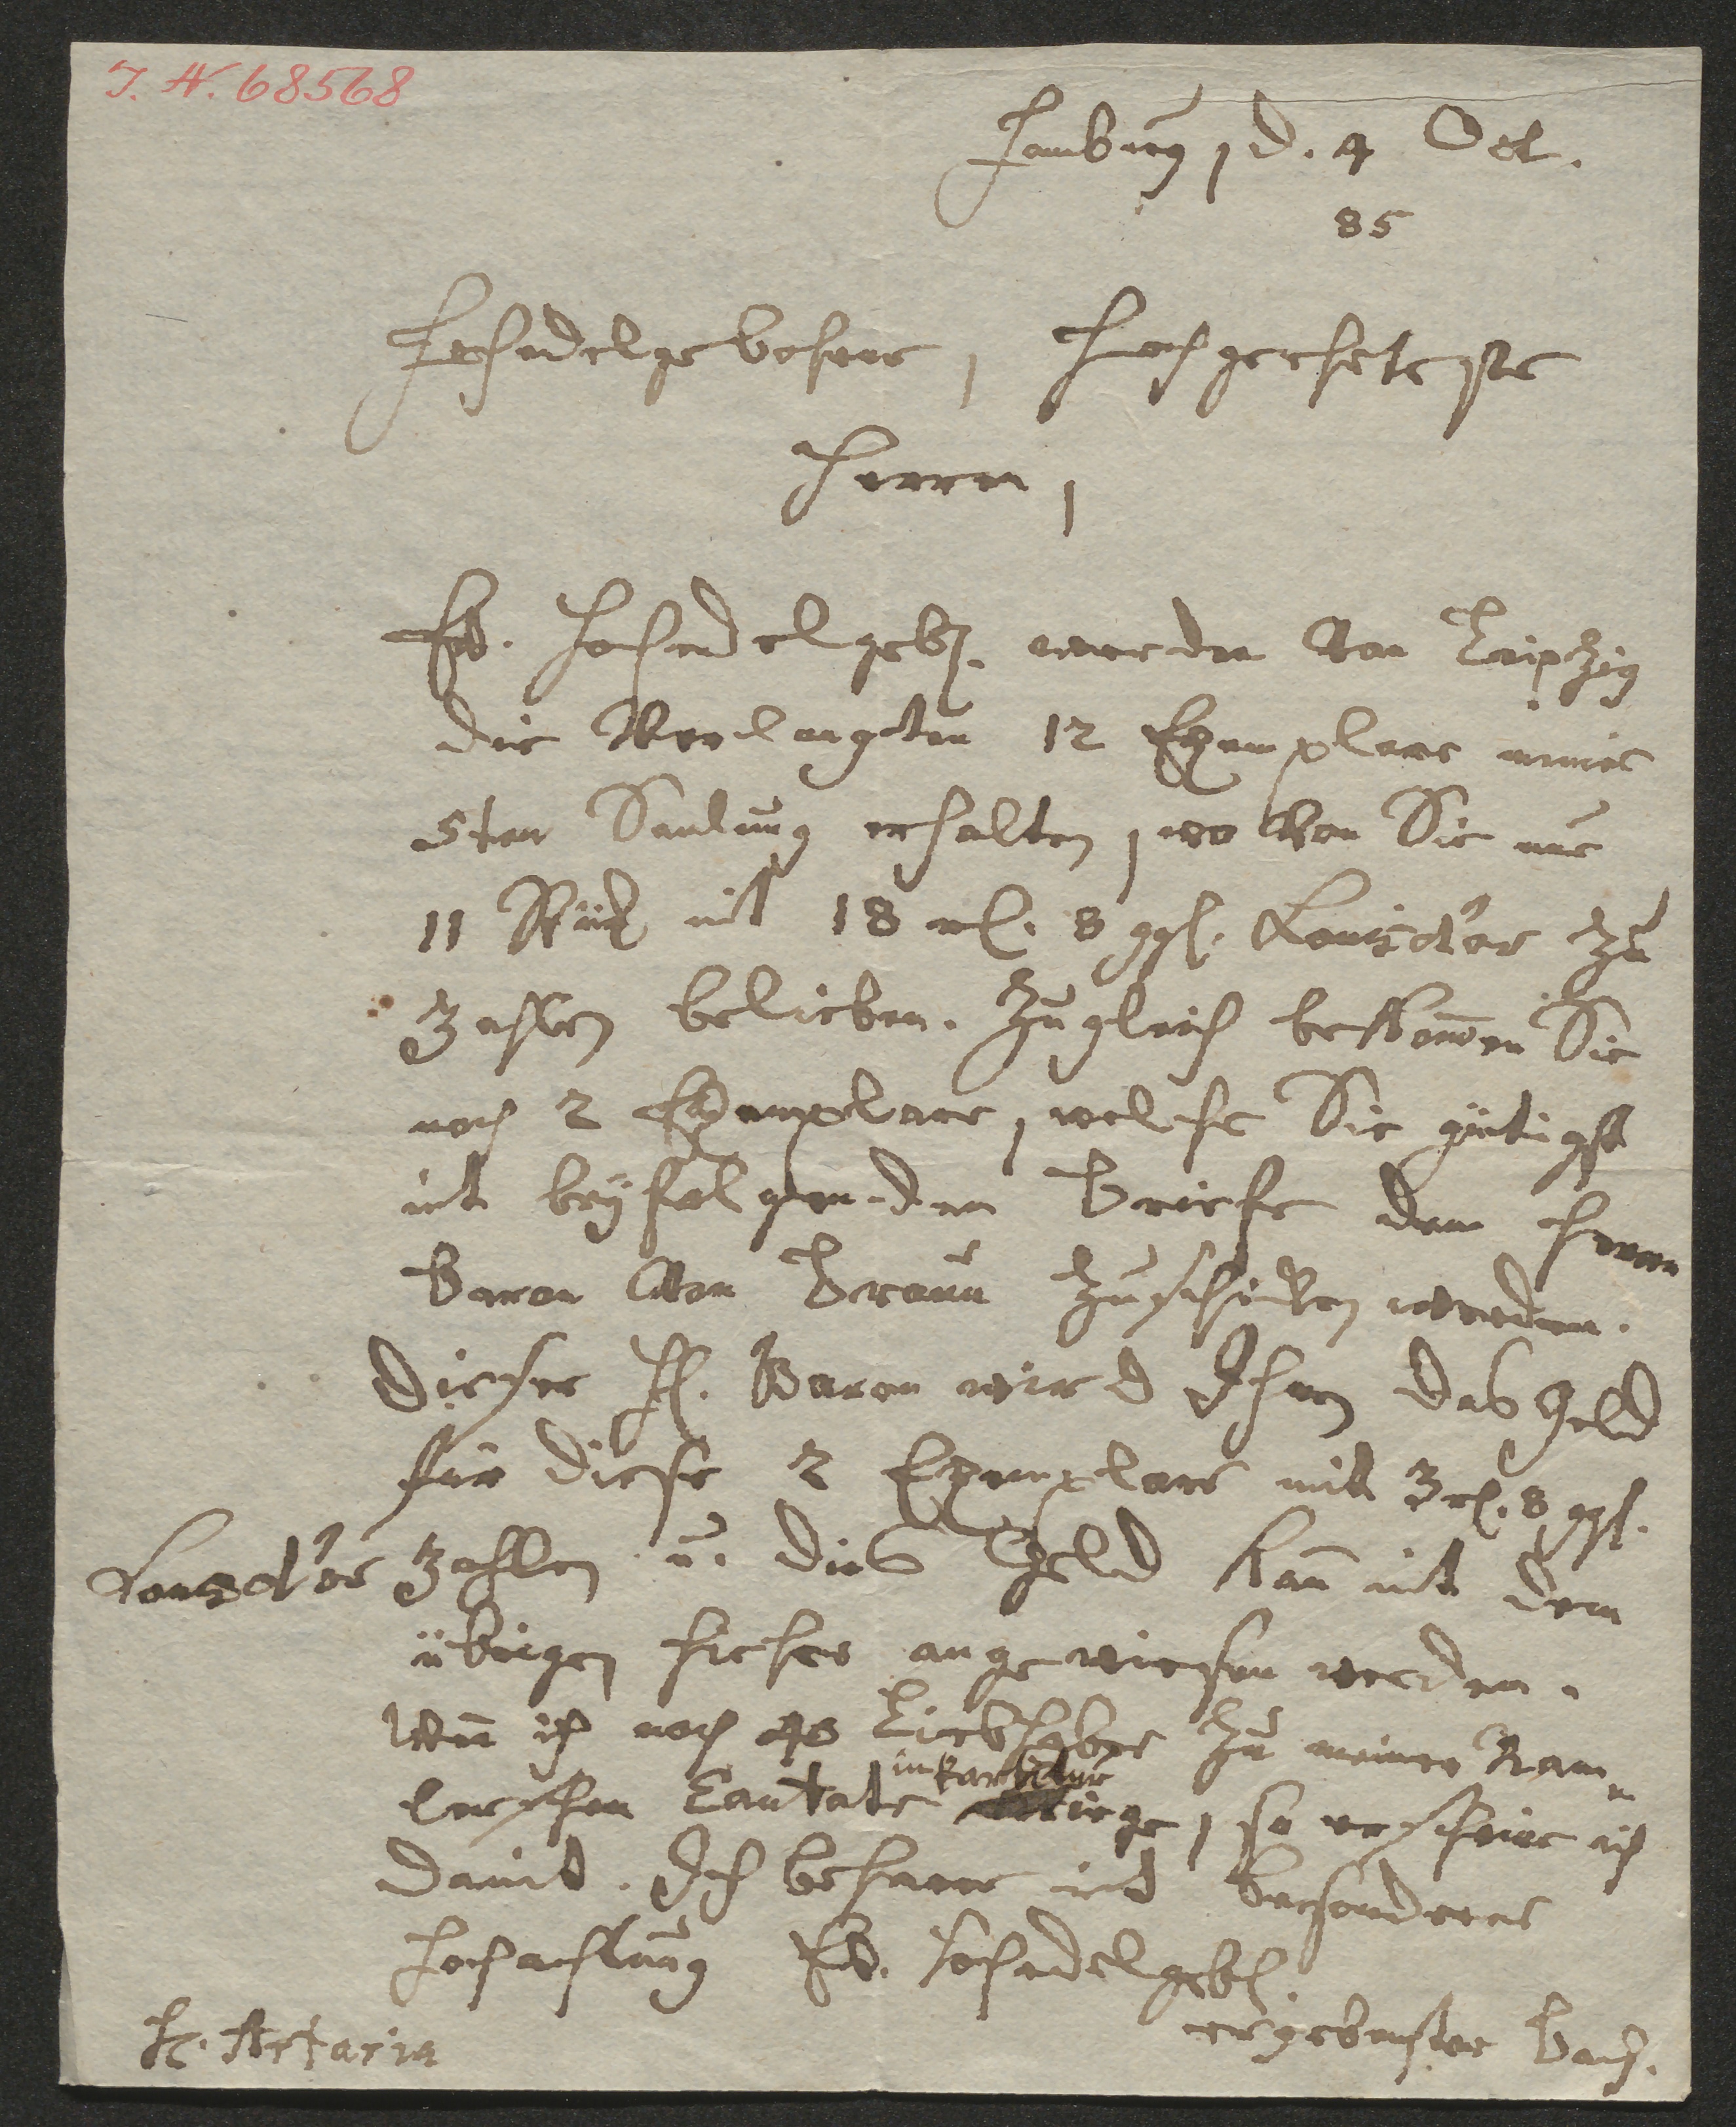 I. N. 68568
Hamburg, d. 4 Oct.
85
Hochedelgebohrne, Hochgeehrteste
Herren,
Ew. Hochedelgeb. werden von Leipzig
die verlangten 12 Exemplare meiner
5ten Samlung erhalten, wovon Sie nur
11 Stück mit 18 rl. 8 ggl. Louisd'or zu
zahlen belieben. Zugleich bekommen Sie
noch 2 Exemplare, welche Sie gütigst
mit beyfolgenden Briefe dem Herrn
Baron von Braun zuschicken werden.
Dieser H. Baron wird Ihnen das Geld
für diese 2 Exemplare mit 3 rl. 8 ggl.
Louisd'or zahlen u. dies Geld kan mit dem
übrigen hieher angewiesen werden.
Wenn ich noch 40 Liebhaber zu meiner Ram¬
lerschen Cantate in Partitur kriege, so erscheine ich
damit. Ich beharre mit besonderer
Hochachtung Ew. Hochedelgeb.
ergebenster Bach.
H. Artaria